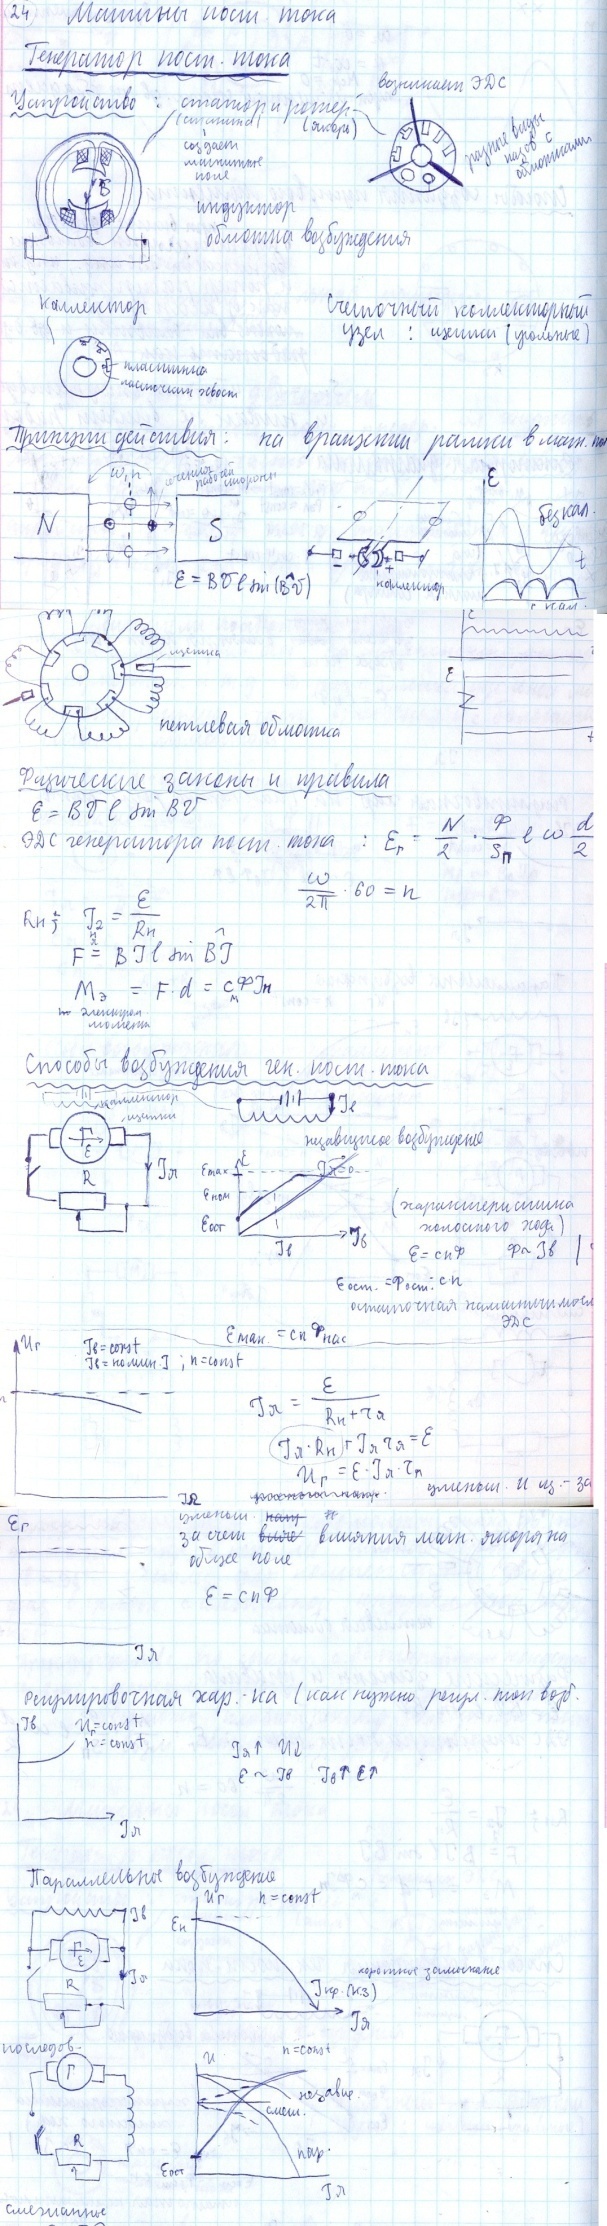 24 Машины пост. тока
Генератор пост. тока
Устройство: статор и ротор
(станина) (якорь)
возникает ЭДС
создает
магнитное
поле
разные виды
пазов с
обмотками
B
индуктор
обмотка возбуждения
коллектор
Щеточный коллекторный
узел: щетки (угольные)
пластинка
Принцип действия: на вращении рамки в маг. пол
ω, n
рабочей стороны
N
S
ε = Bvl sin(B^v)
коллектор
ε
без кол.
t
с кол.
щетка
петлевая обмотка
ε
t
Физические законы и правила
ε = Bvl sin Bv
ЭДС генератора пост. тока: Eг = N/2 · Ф/Sп l ω d/2
ω/2π · 60 = n
Rн; Iя = ε/Rн
F = BIl sin BI
Mэ = F·d = cмФIя
электром
момент
Способы возбуждения ген. пост. тока
коллектор
щетки
Iв
независимое возбуждение
ε
R
Iя
Eмах
Eном
Eост
Iя=0
Iв
Iв
(характеристика
холостого хода)
ε = cnФ Ф~Iв
Eост. = Фост. cn
остаточная намагничиваем
ЭДС
Eмах. = cnФнас
Uг
Iв=const
Iв=номин.I; n=const
Iя = ε/(Rн+rя)
Iя·Rн + Iя rя = ε
Uг = ε - Iя·rя
Iя
уменьш. U из-за
уменьш.
за счет влияния магн. якоря на
общее поле
Eг
ε = cnФ
Iя
Регулировочная хар.-ка (как нужно регул. ток возб.
Iв
Uг=const
n=const
Iя↑ U↓
ε ~ Iв Iв↑ ε↑
Iя
Параллельное возбуждение
Iв
Uг n=const
Eн
ε
Iя
R
короткое замыкание
Iкр.(кз)
Iя
последов.
Г
R
U n=const
независ.
смеш.
пар.
Eост
Iя
смешанное